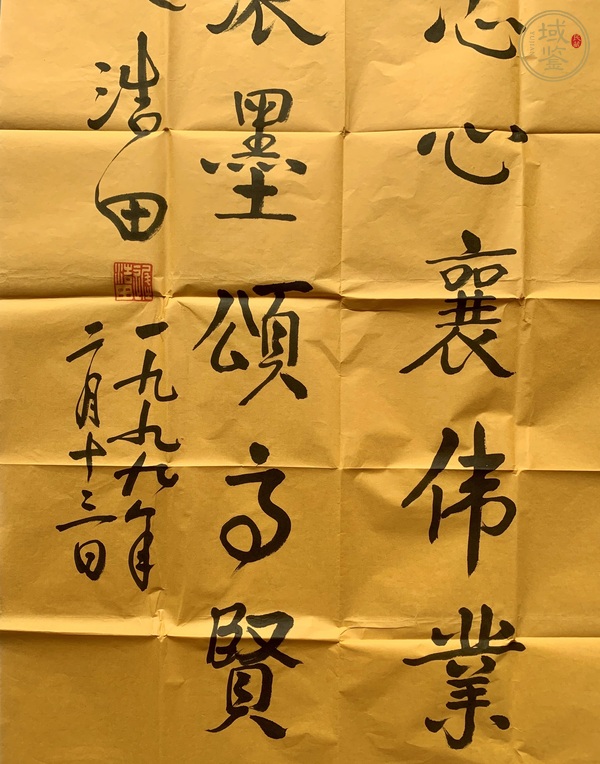 心心襄伟業
墨頌高賢
浩田
一九九九年
二月十三日
域鉴